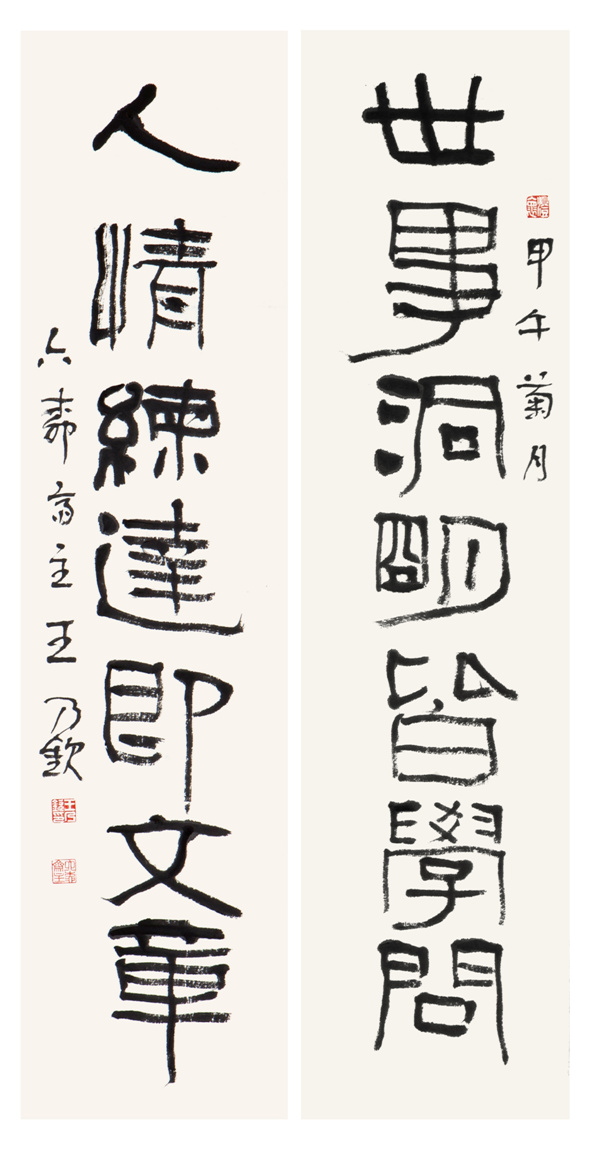 甲午菊月
世事洞明皆學問
人情練達即文章
六壽齋主王乃欽